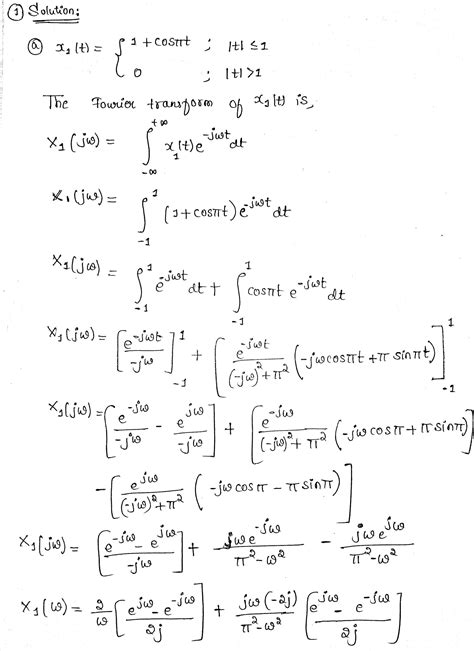 ① Solution:
ⓐ x₁(t) = { 1 + cosπt ; |t| ≤ 1
0 ; |t| > 1
The Fourier transform of x₁(t) is,
X₁(jω) = ∫_{-∞}^{+∞} x₁(t) e^{-jωt} dt
X₁(jω) = ∫_{-1}^{1} (1 + cosπt) e^{-jωt} dt
X₁(jω) = ∫_{-1}^{1} e^{-jωt} dt + ∫_{-1}^{1} cosπt e^{-jωt} dt
X₁(jω) = [e^{-jωt}/-jω]_{-1}^{1} + [e^{-jωt}/((-jω)²+π²) (-jωcosπt + π sinπt)]_{-1}^{1}
X₁(jω) = [e^{-jω}/-jω - e^{jω}/-jω] + [e^{-jω}/((-jω)²+π²) (-jωcosπ + π sinπ)]
- [e^{jω}/((-jω)²+π²) (-jωcosπ - π sinπ)]
X₁(jω) = [(e^{-jω} - e^{jω})/-jω] + jωe^{-jω}/(π²-ω²) - jωe^{jω}/(π²-ω²)
X₁(ω) = 2/ω [(e^{jω} - e^{-jω})/2j] + jω(-2j)/(π²-ω²) [(e^{jω} - e^{-jω})/2j]